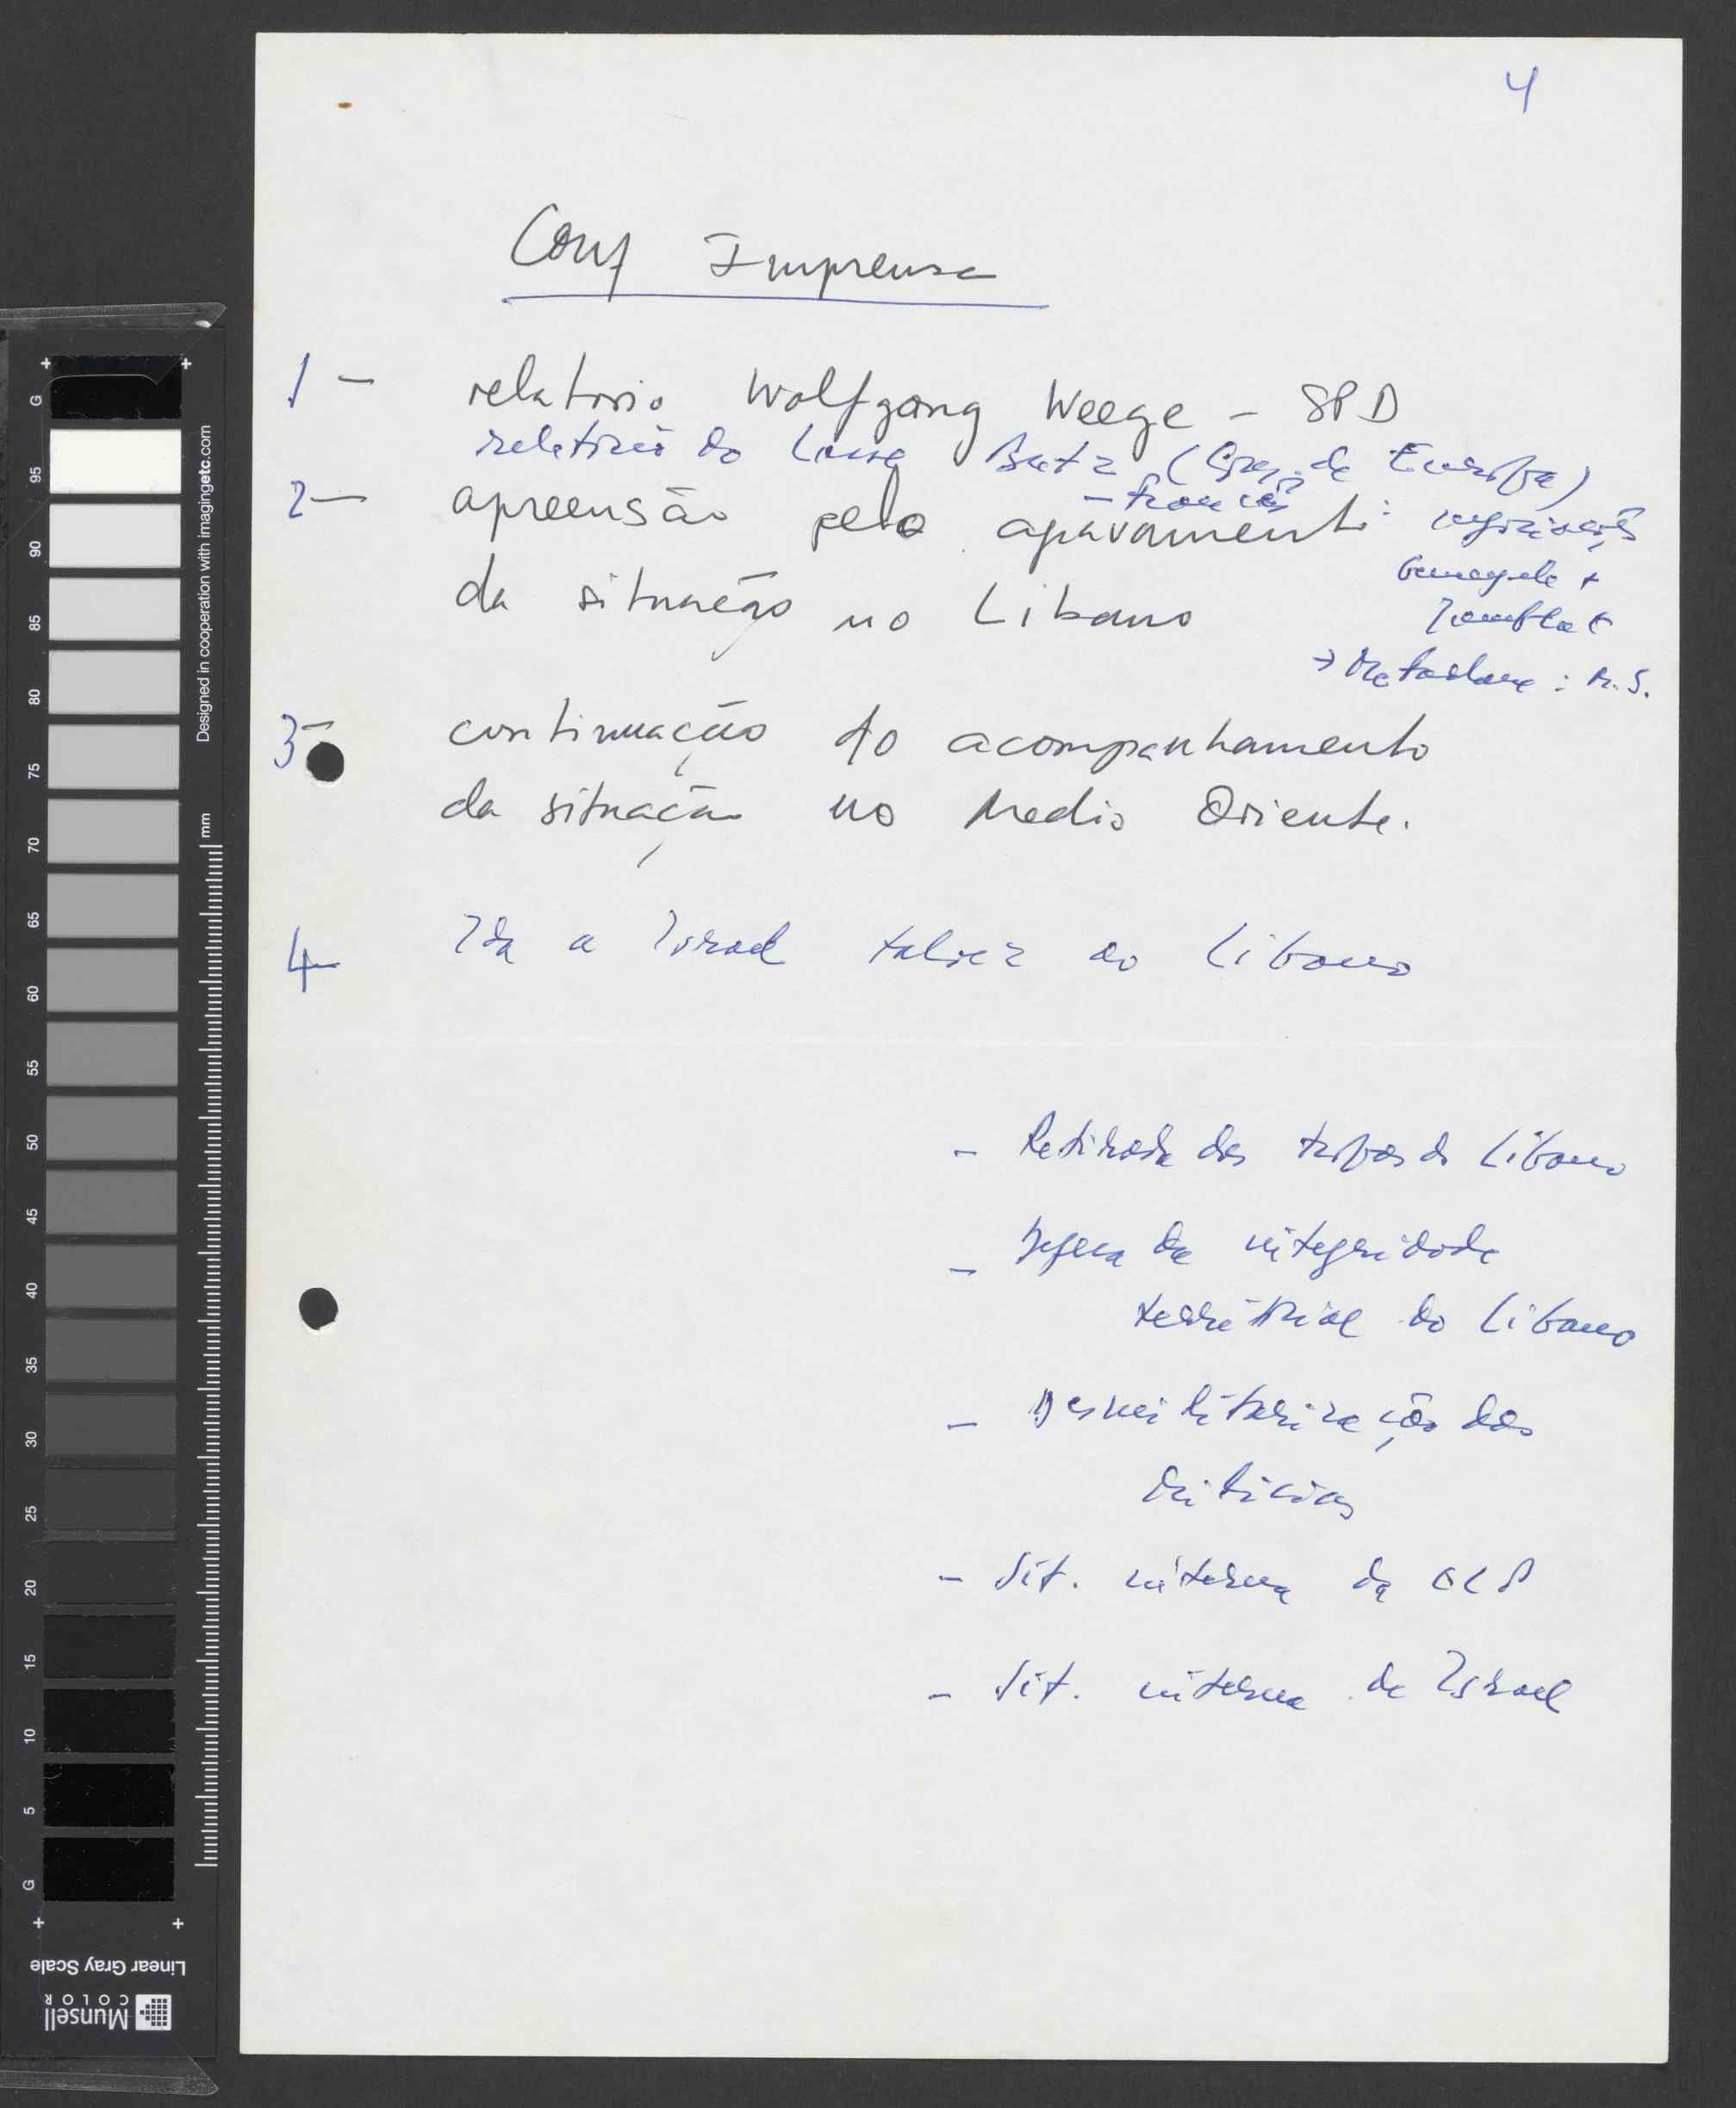 4
Conf Imprensa
1 – relatorio Wolfgang Weege – SPD
relatório do Lasse Butz (Graz, de Europa)
– francês
2 – apreensão pelo agravamento : negociações
Gemayele +
Jomblat
da situação no Libano
→ : M.S.
3 – continuação do acompanhamento
da situação no Medio Oriente.
4 – Ida a Israel talvez ao Libano
– Retirada das tropas do Libano
– Defesa da integridade
territorial do Libano
– Desmilitarização das
milicias
– Sit. interna da OLP
– Sit. interna de Israel
Designed in cooperation with imagingetc.com
mm
G 95 90 85 80 75 70 65 60 55 50 45 40 35 30 25 20 15 10 5 G
Linear Gray Scale
Munsell
COLOR